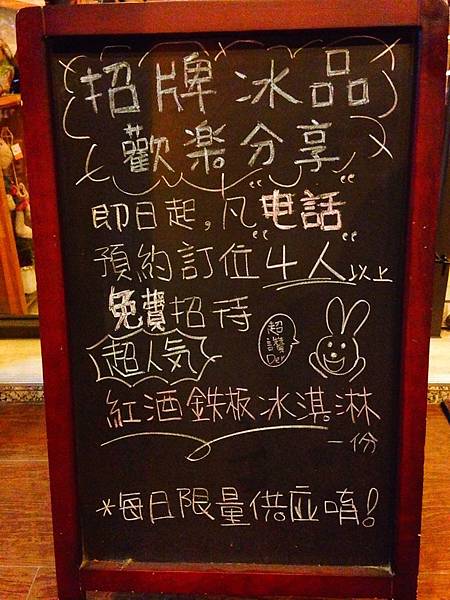 招牌冰品
歡楽分享
即日起,凡"电話"
預約訂位4人以上
免費招待
超人気
超讚Der
紅酒鉄板冰淇淋
一份
*每日限量供应唷!